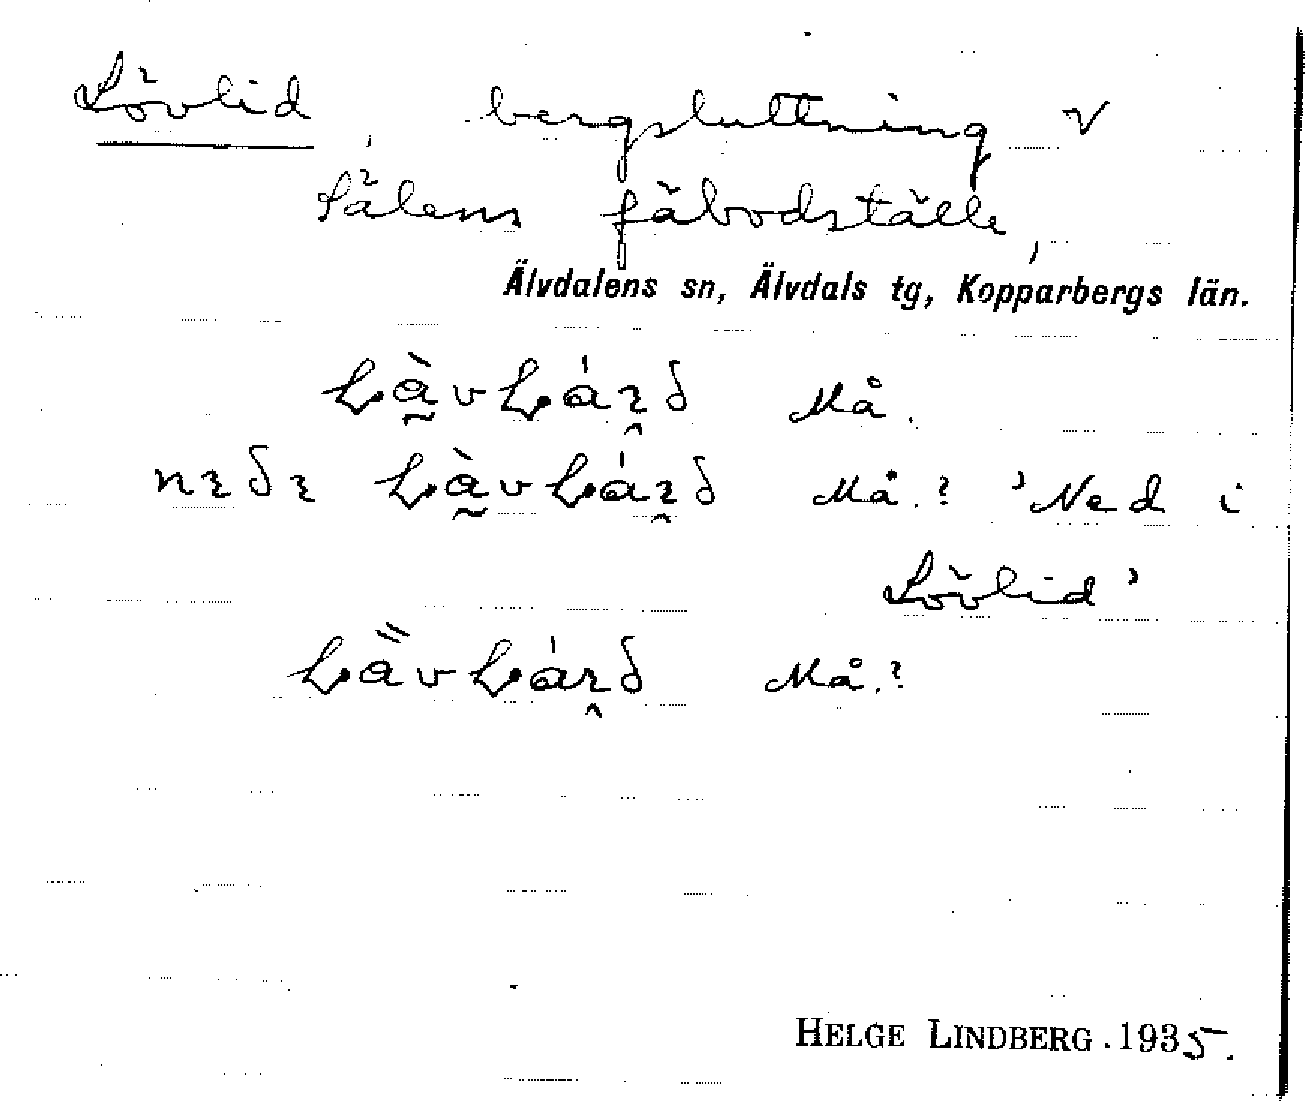 Lövlid, bergsluttning V
Sälens fäbodställe,
Älvdalens sn, Älvdals tg, Kopparbergs län.
Må.
Må.? 'Ned i
Lövlid'
Må.?
HELGE LINDBERG. 1935.